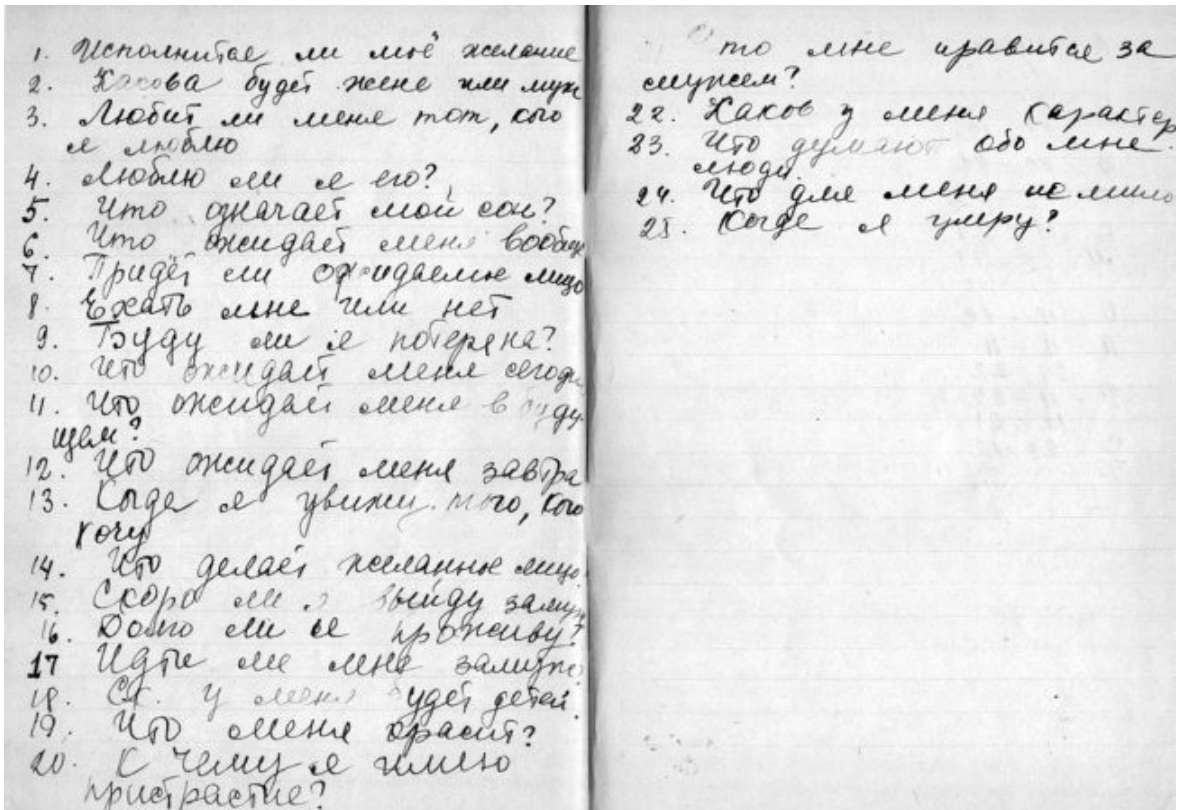 1. Исполнитсе ли моё желание
2. Какова будет жене или муж
3. Любит ли меня тот, кого
я люблю
4. Люблю ли я его?
5. Что означает мой сон?
6. Что ожидает меня вообще
7. Придёт ли ожидаемое лицо
8. Ехать мне или нет
9. Буду ли я потеряна?
10. Что ожидает меня сегодн
11. Что ожидает меня в буду
щем?
12. Что ожидает меня завтра
13. Когда я увижу того, кого
хочу
14. Что делает желанное лицо
15. Скоро ли я выйду замуж
16. Долго ли я проживу?
17 Идти ли мне замуж?
18. Ск. у меня будет детей.
19. Что меня красит?
20. К чему я имею
пристрастие?
то мне нравится за
мужем?
22. Каков у меня характер
23. Что думают обо мне
люди.
24. Что для меня не мило
25. Когде я умру?